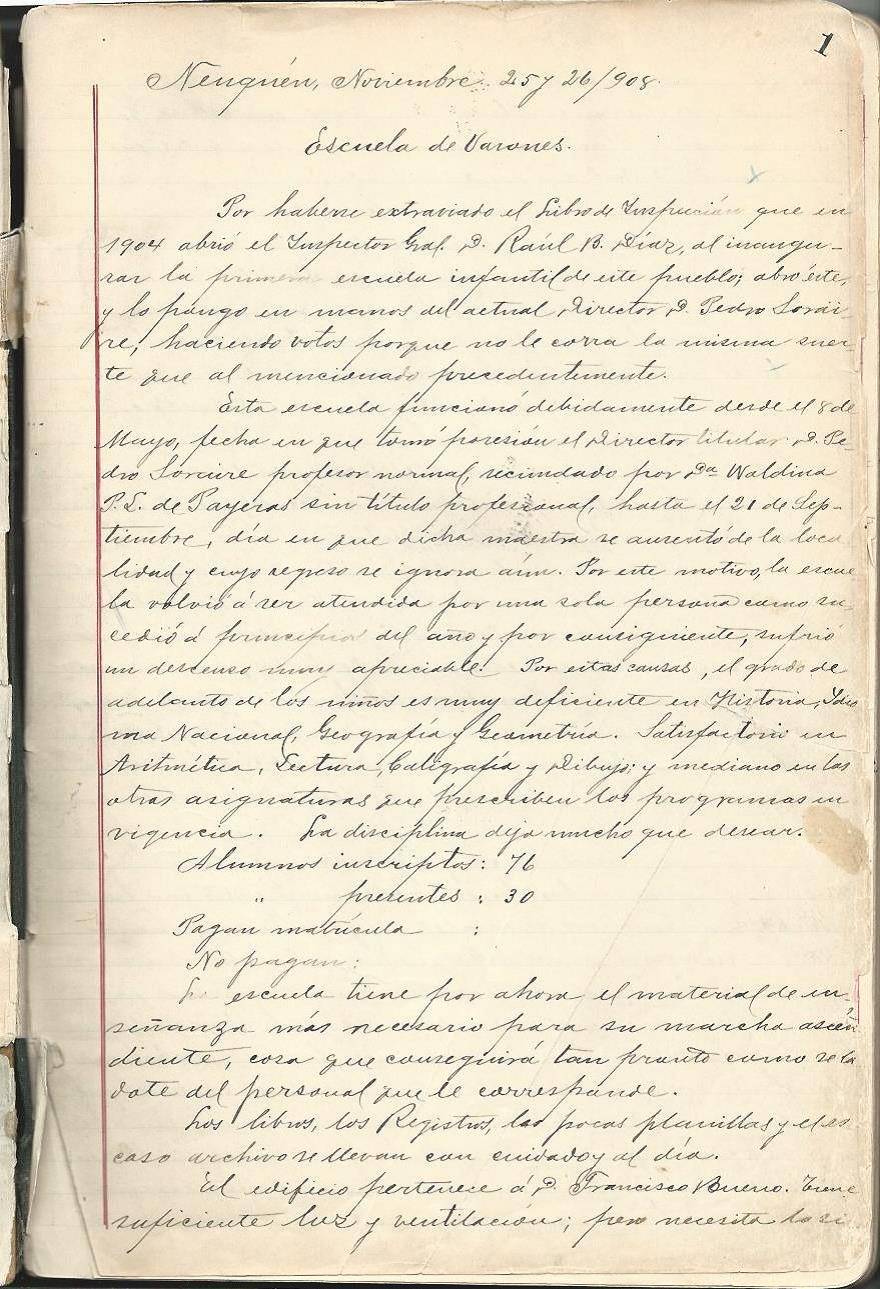 1
Neuquén, Noviembre 25 y 26/908.
Escuela de Varones.
Por haberse extraviado el Libro de Inspección que en
1904 abrió el Inspector Gral. D. Raúl B. Díaz, al inaugu-
rar la primera escuela infantil de este pueblo; abro éste,
y lo pongo en manos del actual Director D. Pedro
re, haciendo votos porque no le corra la misma suer-
te que al mencionado precedentemente.
Esta escuela funcionó debidamente desde el 8 de
Mayo, fecha en que tomó posesión el Director titular D. Pe-
dro profesor normal, secundado por Da Waldina
P. L. de Payeras sin título profesional, hasta el 21 de Sep-
tiembre, día en que dicha maestra se ausentó de la loca
lidad y cuyo regreso se ignora aún. Por este motivo, la escue
la volvió á ser atendida por una sola persona como su-
cedió á principios del año y por consiguiente, sufrió
un descenso muy apreciable. Por estas causas, el grado de
adelanto de los niños es muy deficiente en Historia, Idio
ma Nacional, Geografía y Geometría. Satisfactorio en
Aritmética, Lectura, Caligrafía y Dibujo; y mediano en las
otras asignaturas que prescriben los programas en
vigencia. La disciplina deja mucho que desear.
Alumnos inscriptos: 76
" presentes : 30
Pagan matrícula :
No pagan:
La escuela tiene por ahora el material de en-
señanza más necesario para su marcha ascen
diente, cosa que conseguirá tan pronto como se la
dote del personal que le corresponde.
Los libros, los Registros, las pocas planillas y el es
caso archivo se llevan con cuidado y al día.
El edificio pertenece á D. Francisco Bueno. Tiene
suficiente luz y ventilación; pero necesita la si